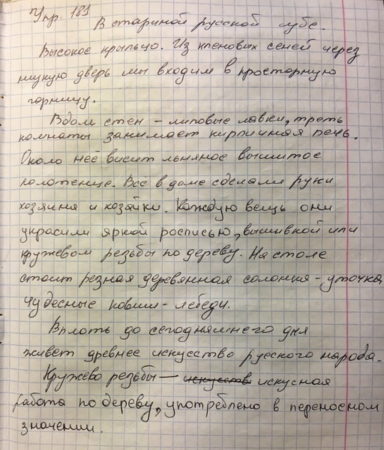 Упр 183
В старинной русской избе.
Высокое крыльцо. Из кленовых сеней через
низкую дверь мы входим в просторную
горницу.
Вдоль стен - липовые лавки, треть
комнаты занимает кирпичная печь.
Около неё висит льняное вышитое
полотенце. Всё в доме сделали руки
хозяина и хозяйки. Каждую вещь они
украсили яркой росписью, вышивкой или
кружевом резьбы по дереву. На столе
стоит резная деревянная солонка - уточка,
чудесные ковши - лебеди.
Вплоть до сегодняшнего дня
живёт древнее искусство русского народа.
Кружево резьбы - искусств искусная
работа по дереву, употреблено в переносном
значении.